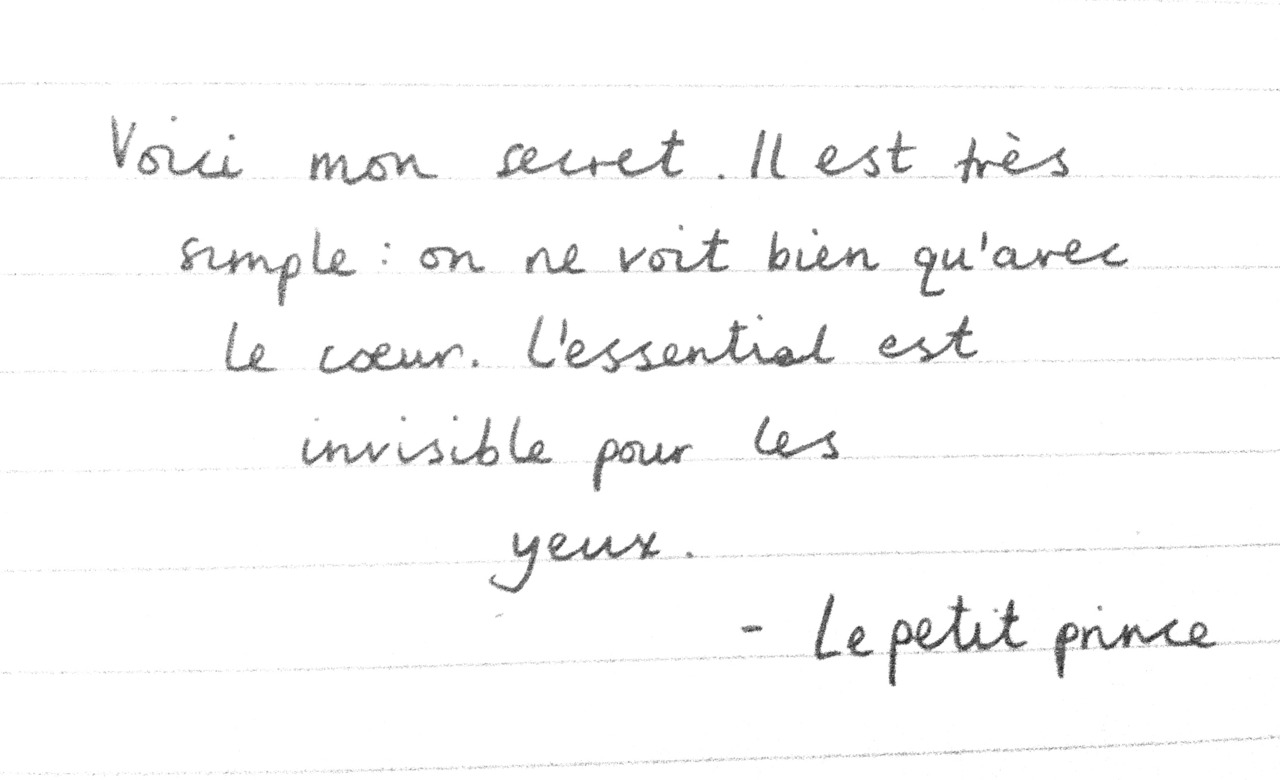 Voici mon secret. Il est très
simple : on ne voit bien qu'avec
le cœur. L'essential est
invisible pour les
yeux.
- Le petit prince